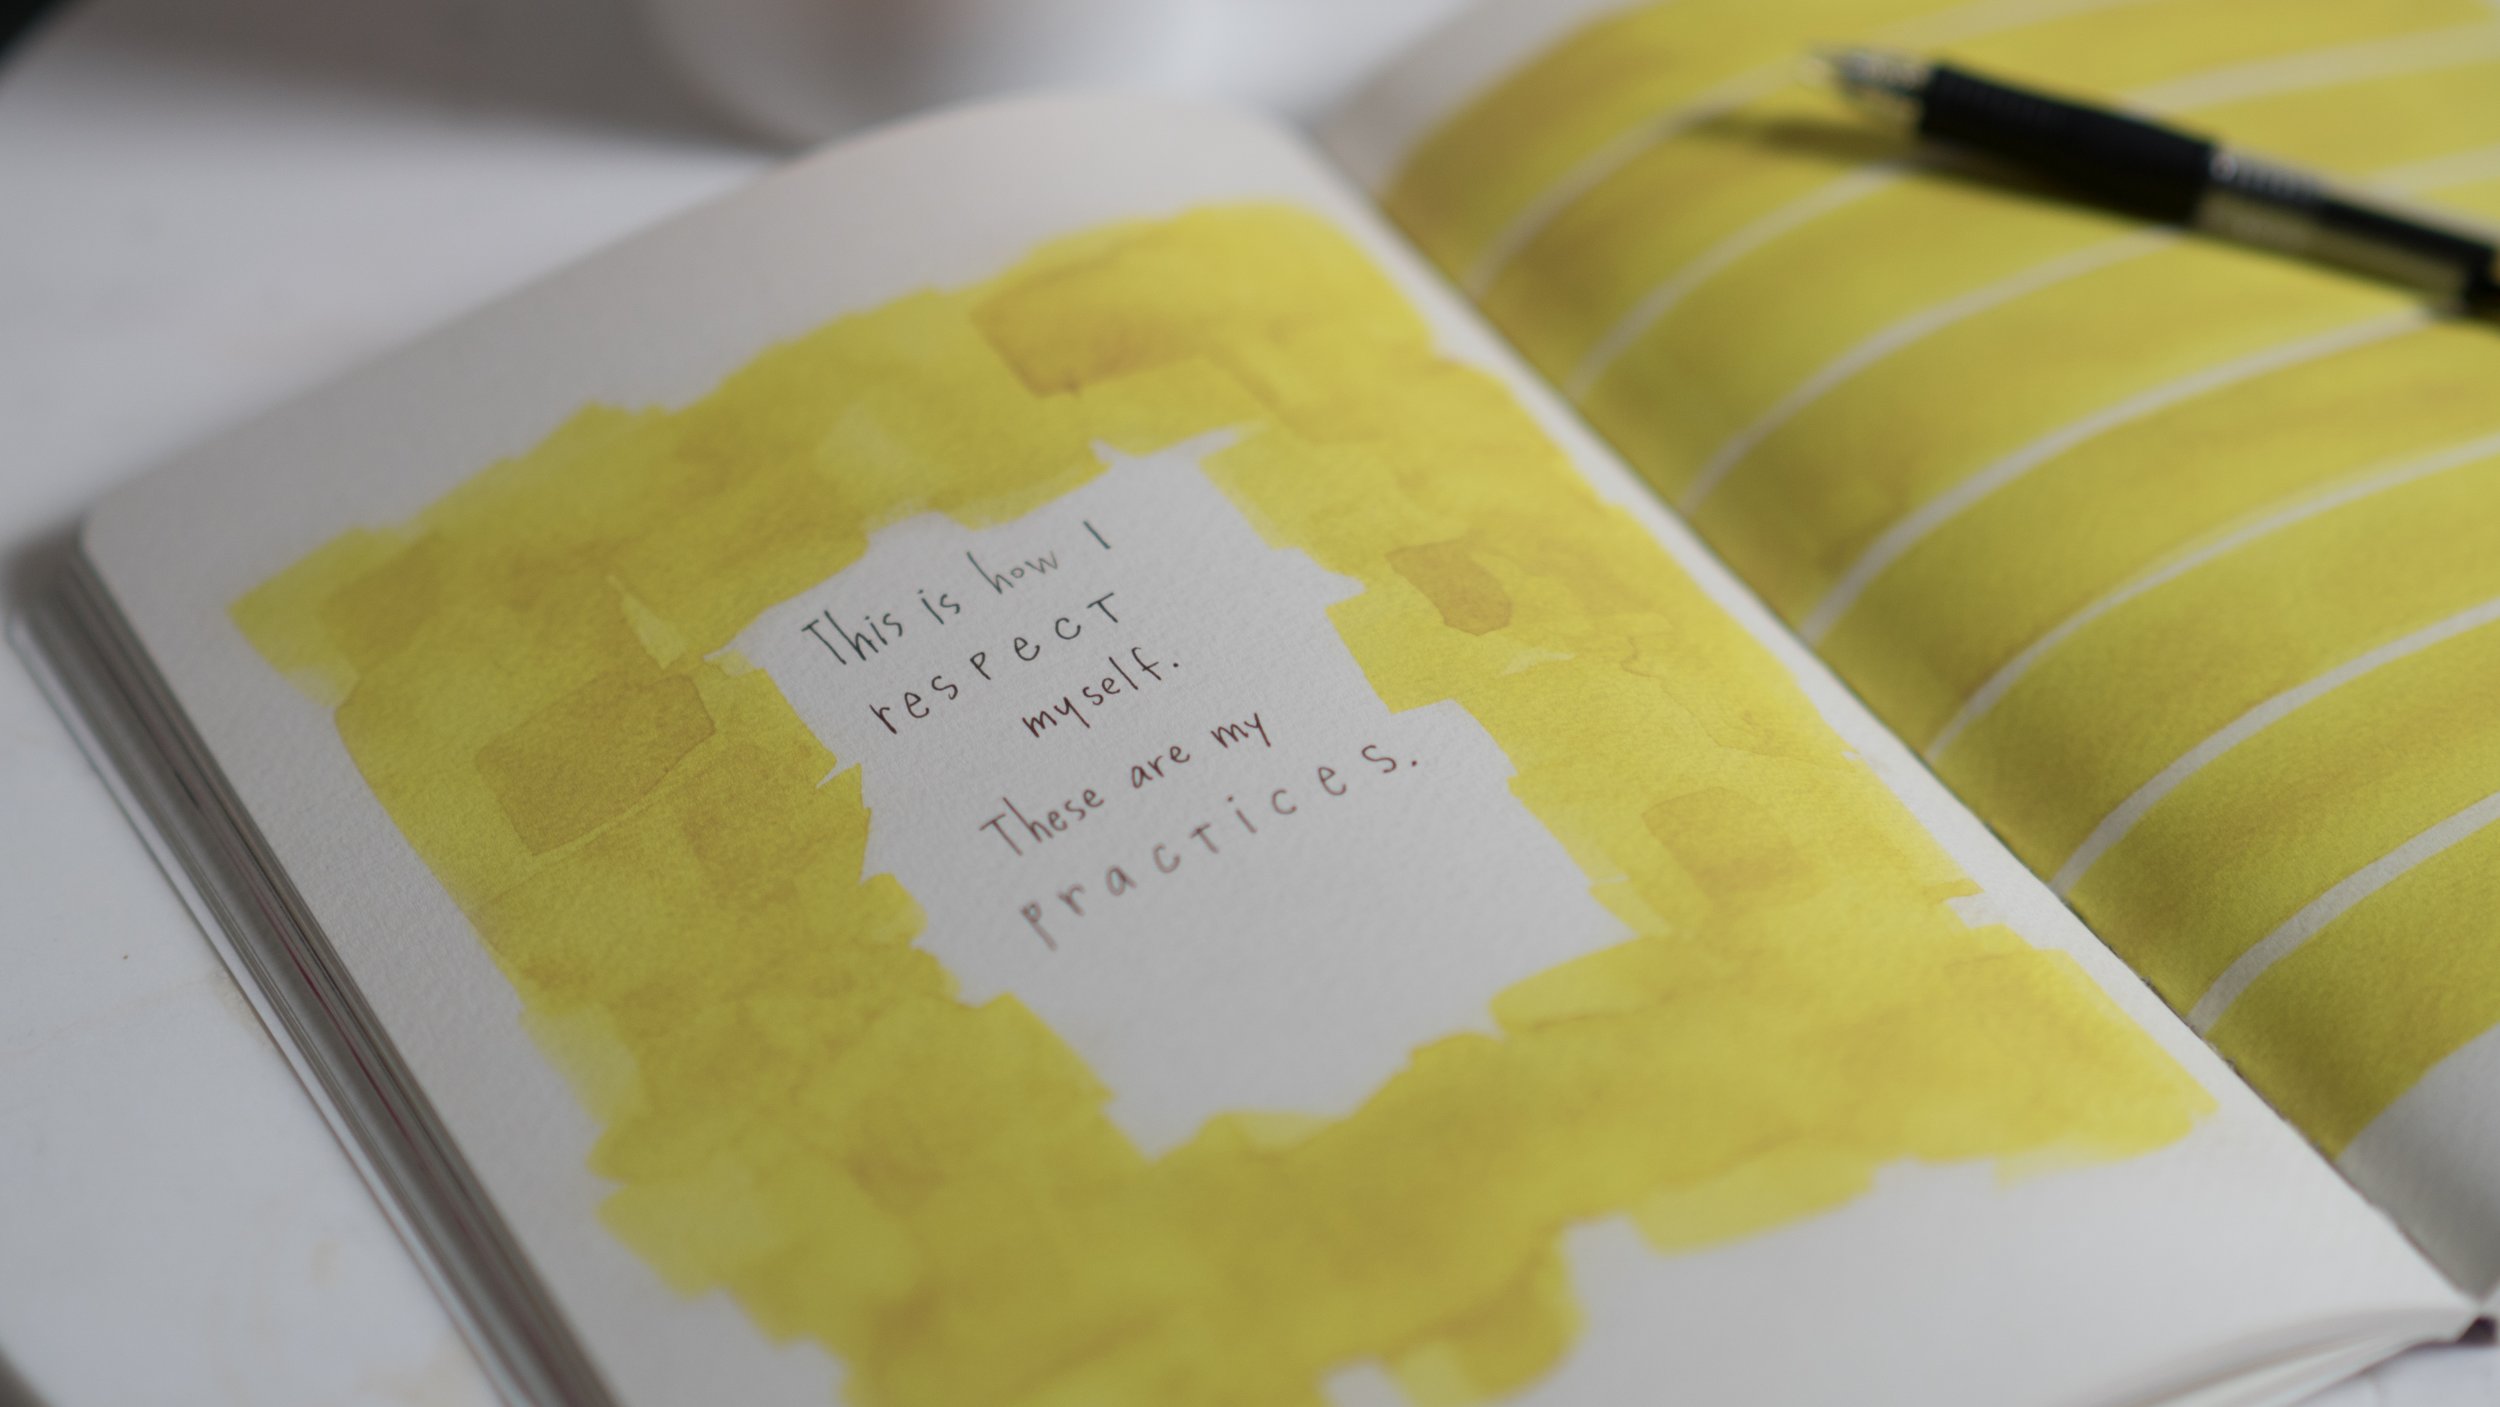 This is how I
respect
myself.
These are my
practices.